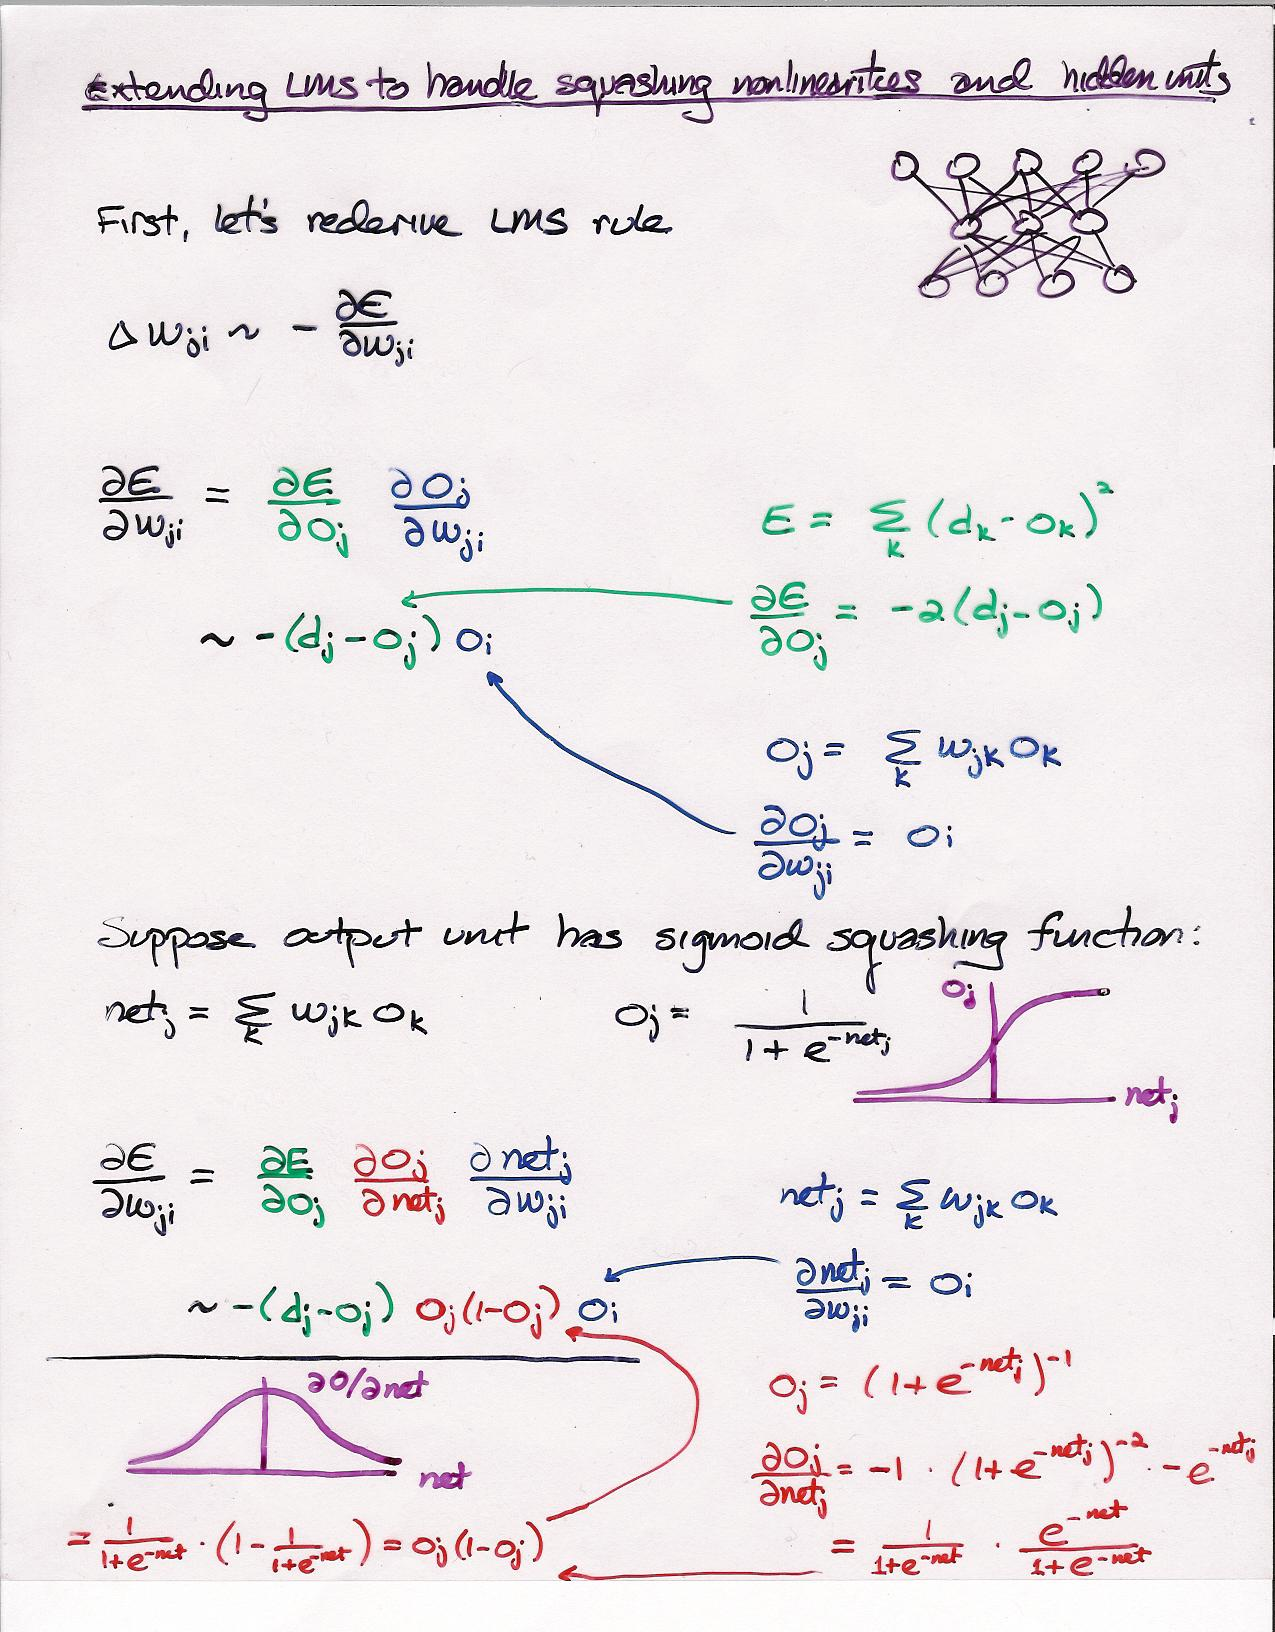 Extending LMS to handle squashing nonlinearities and hidden units
First, let's rederive LMS rule
Δw_ji ~ - ∂E/∂w_ji
∂E/∂w_ji = ∂E/∂o_j ∂o_j/∂w_ji
E = Σ_k (d_k - o_k)^2
∂E/∂o_j = -2(d_j - o_j)
~ -(d_j - o_j) o_i
o_j = Σ_k w_jk o_k
∂o_j/∂w_ji = o_i
Suppose output unit has sigmoid squashing function:
net_j = Σ_k w_jk o_k
o_j = 1/(1 + e^-net_j)
o_j
net_j
∂E/∂w_ji = ∂E/∂o_j ∂o_j/∂net_j ∂net_j/∂w_ji
net_j = Σ_k w_jk o_k
∂net_j/∂w_ji = o_i
~ -(d_j - o_j) o_j(1-o_j) o_i
∂o/∂net
net
o_j = (1 + e^-net_j)^-1
∂o_j/∂net_j = -1 · (1 + e^-net_j)^-2 · -e^-net_j
= 1/(1+e^-net) · e^-net/(1+e^-net)
= 1/(1+e^-net) · (1 - 1/(1+e^-net)) = o_j(1-o_j)